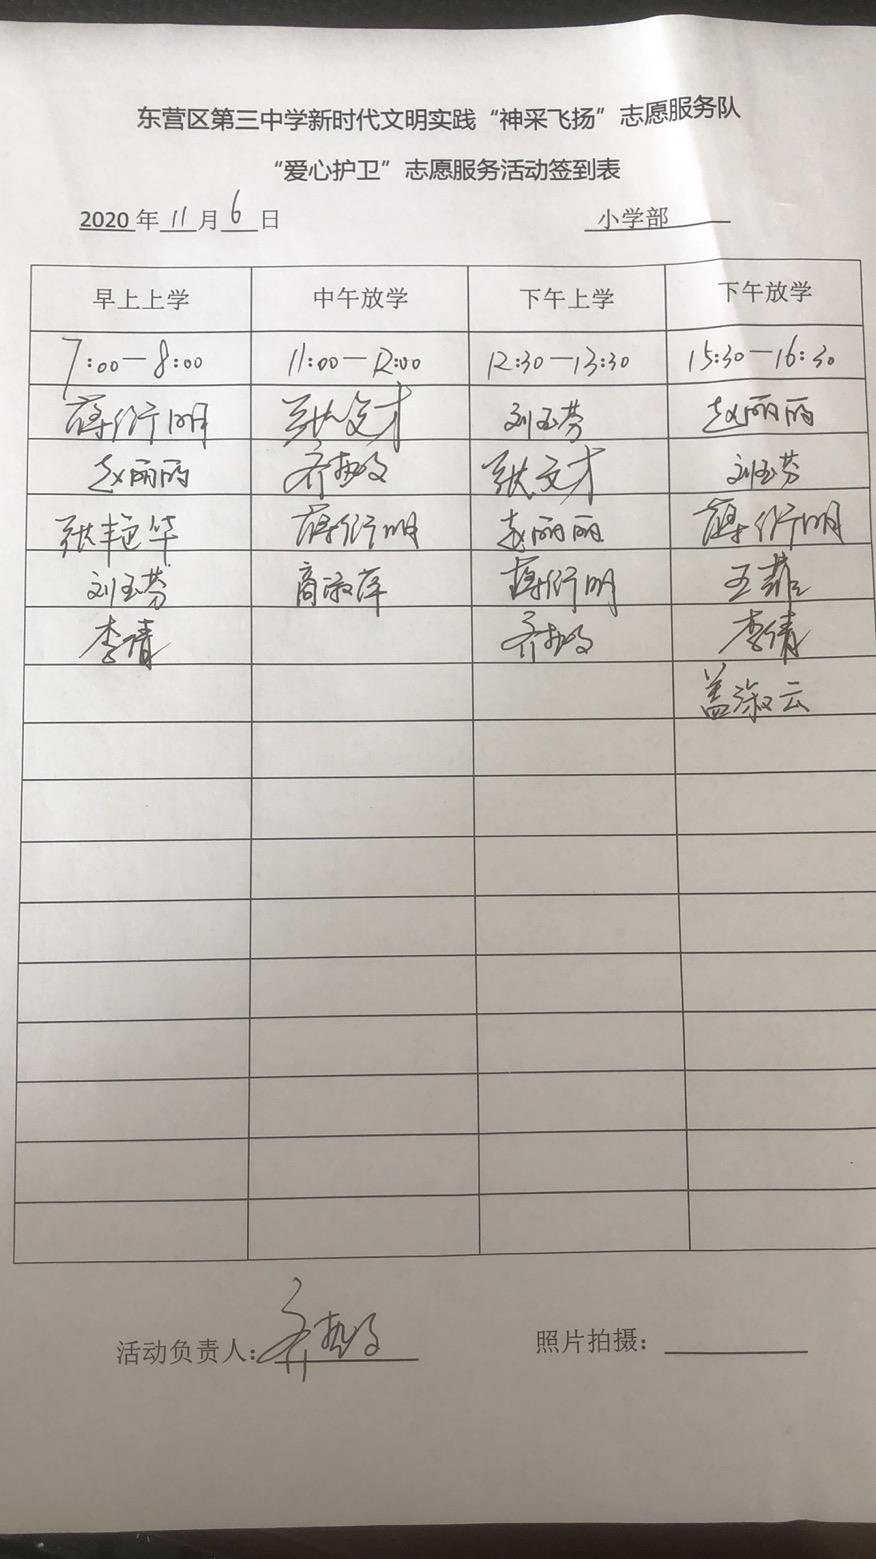 东营区第三中学新时代文明实践“神采飞扬”志愿服务队
“爱心护卫”志愿服务活动签到表
2020年11月6日 小学部
早上上学 中午放学 下午上学 下午放学
7:00—8:00 11:00—12:00 12:30—13:30 15:30—16:30
薛衍明 张文才 刘玉芬 赵丽丽
赵丽丽 齐 张文才 刘玉芬
张艳华 薛衍明 赵丽丽 薛衍明
刘玉芬 商淑萍 薛衍明 王
李倩 齐 李倩
盖淑云
活动负责人:齐 照片拍摄: